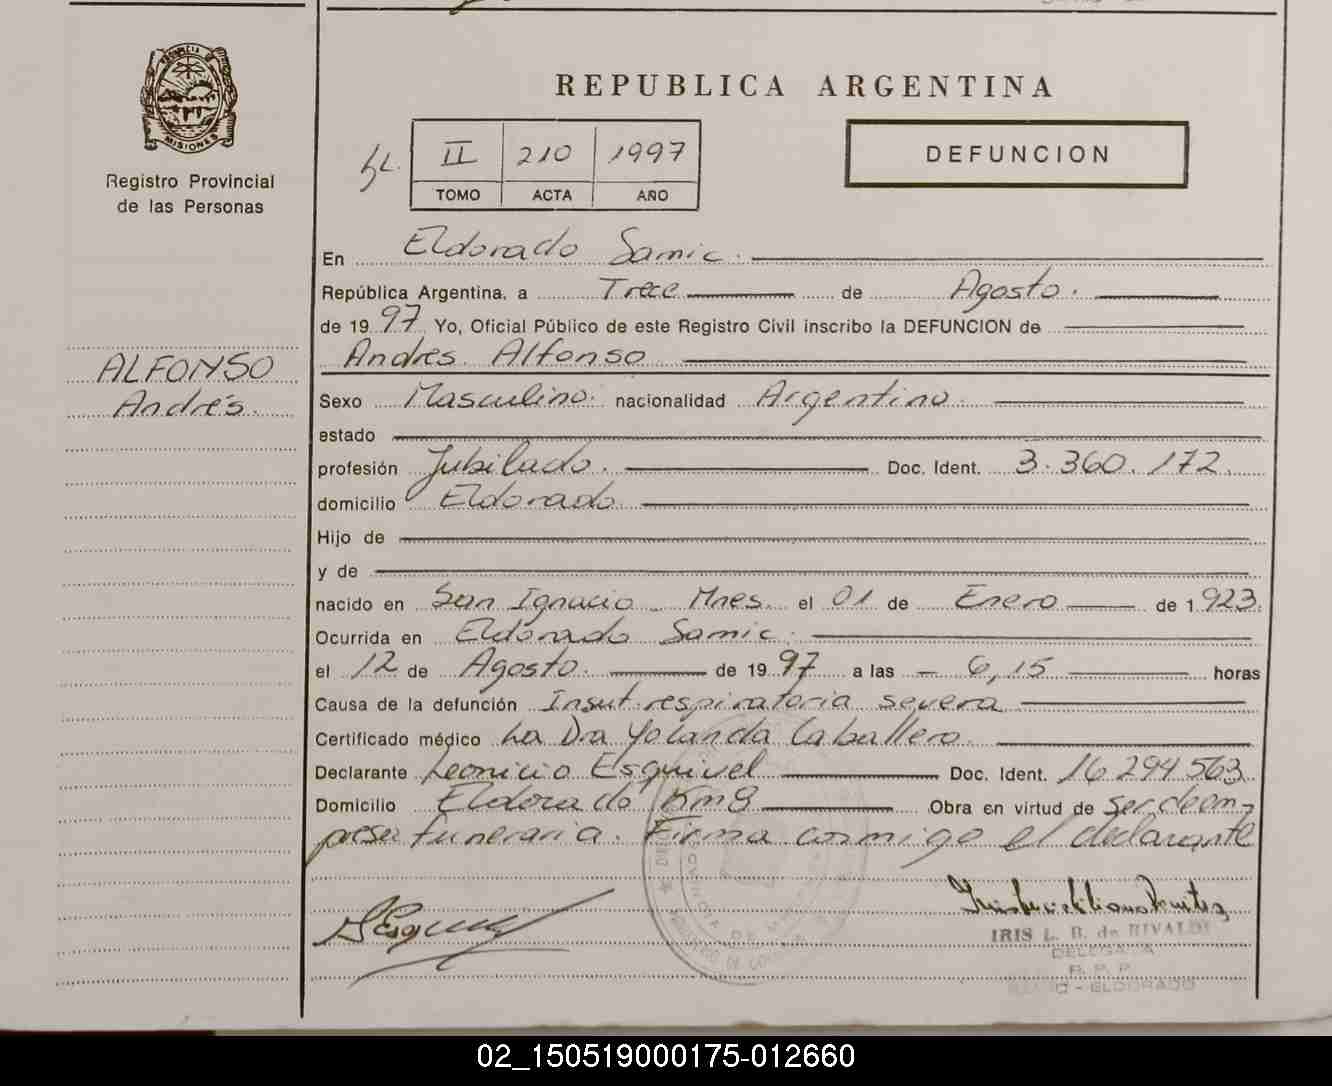 PROVINCIA DE
MISIONES
Registro Provincial
de las Personas
ALFONSO
Andrés.
REPUBLICA ARGENTINA
II 210 1997
TOMO ACTA AÑO
DEFUNCION
En Eldorado Samic.
República Argentina, a Trece de Agosto.
de 1997 Yo, Oficial Público de este Registro Civil inscribo la DEFUNCION de
Andres Alfonso
Sexo Masculino. nacionalidad Argentino.
estado
profesión Jubilado. Doc. Ident. 3.360.172
domicilio Eldorado
Hijo de
y de
nacido en San Ignacio Mnes. el 01 de Enero de 1923.
Ocurrida en Eldorado Samic.
el 12 de Agosto. de 1997 a las 6,15 horas
Causa de la defunción Insuf. respiratoria severa
Certificado médico La Dra Yolanda Caballero.
Declarante Leonicio Esquivel Doc. Ident. 16.294.563
Domicilio Eldorado Km 9 Obra en virtud de ser de em-
presa funeraria. Firma conmigo el declarante
IRIS L. B. de RIVALDI
DELEGADA
R. P. P.
ELDORADO
02_150519000175-012660